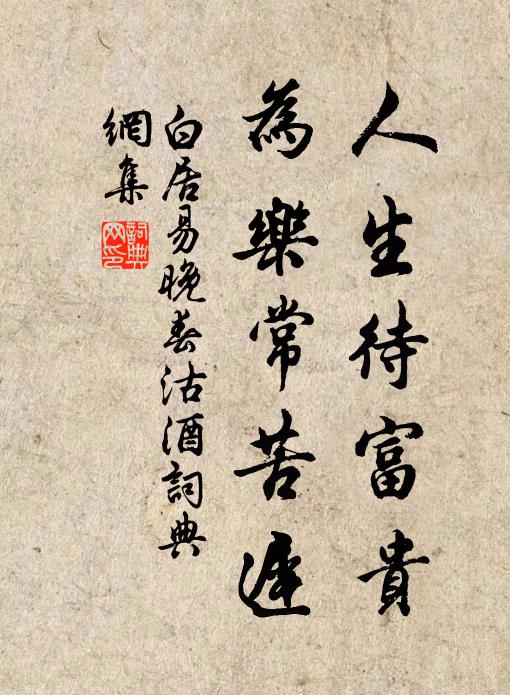 人生待富貴
為樂常苦遲
白居易晚春沽酒詞典
網集
詞典
网印